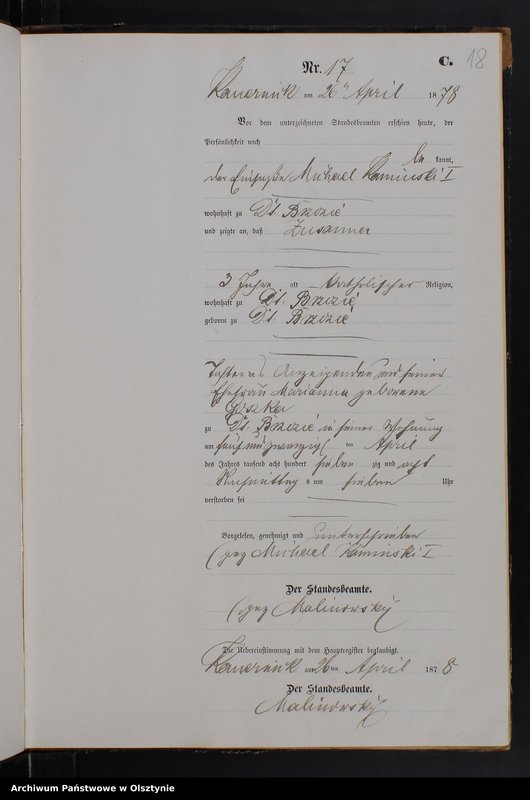 18
C.
Nr. 17
Kauernik am 26 ten April 1878
Vor dem unterzeichneten Standesbeamten erschien heute, der
Persönlichkeit nach
be kannt,
der Michael Kaminski I
wohnhaft zu Dt. Brzozie
und zeigte an, daß Susanna
3 Jahre alt katholischer Religion,
wohnhaft zu Dt. Brzozie
geboren zu Dt. Brzozie
Tochter des Anzeigenden und seiner
Ehefrau Marianna geborene
zu Dt. Brzozie in seiner Wohnung
am fünf und zwanzigsten April
des Jahres tausend acht hundert sieben zig und acht
Nachmittags um sieben Uhr
verstorben sei
Vorgelesen, genehmigt und unterschrieben
(gez Michael Kaminski I
Der Standesbeamte.
(gez Malinowsky
Die Uebereinstimmung mit dem Hauptregister beglaubigt.
Kauernik am 26 ten April 1878
Der Standesbeamte.
Malinowsky
Archiwum Państwowe w Olsztynie